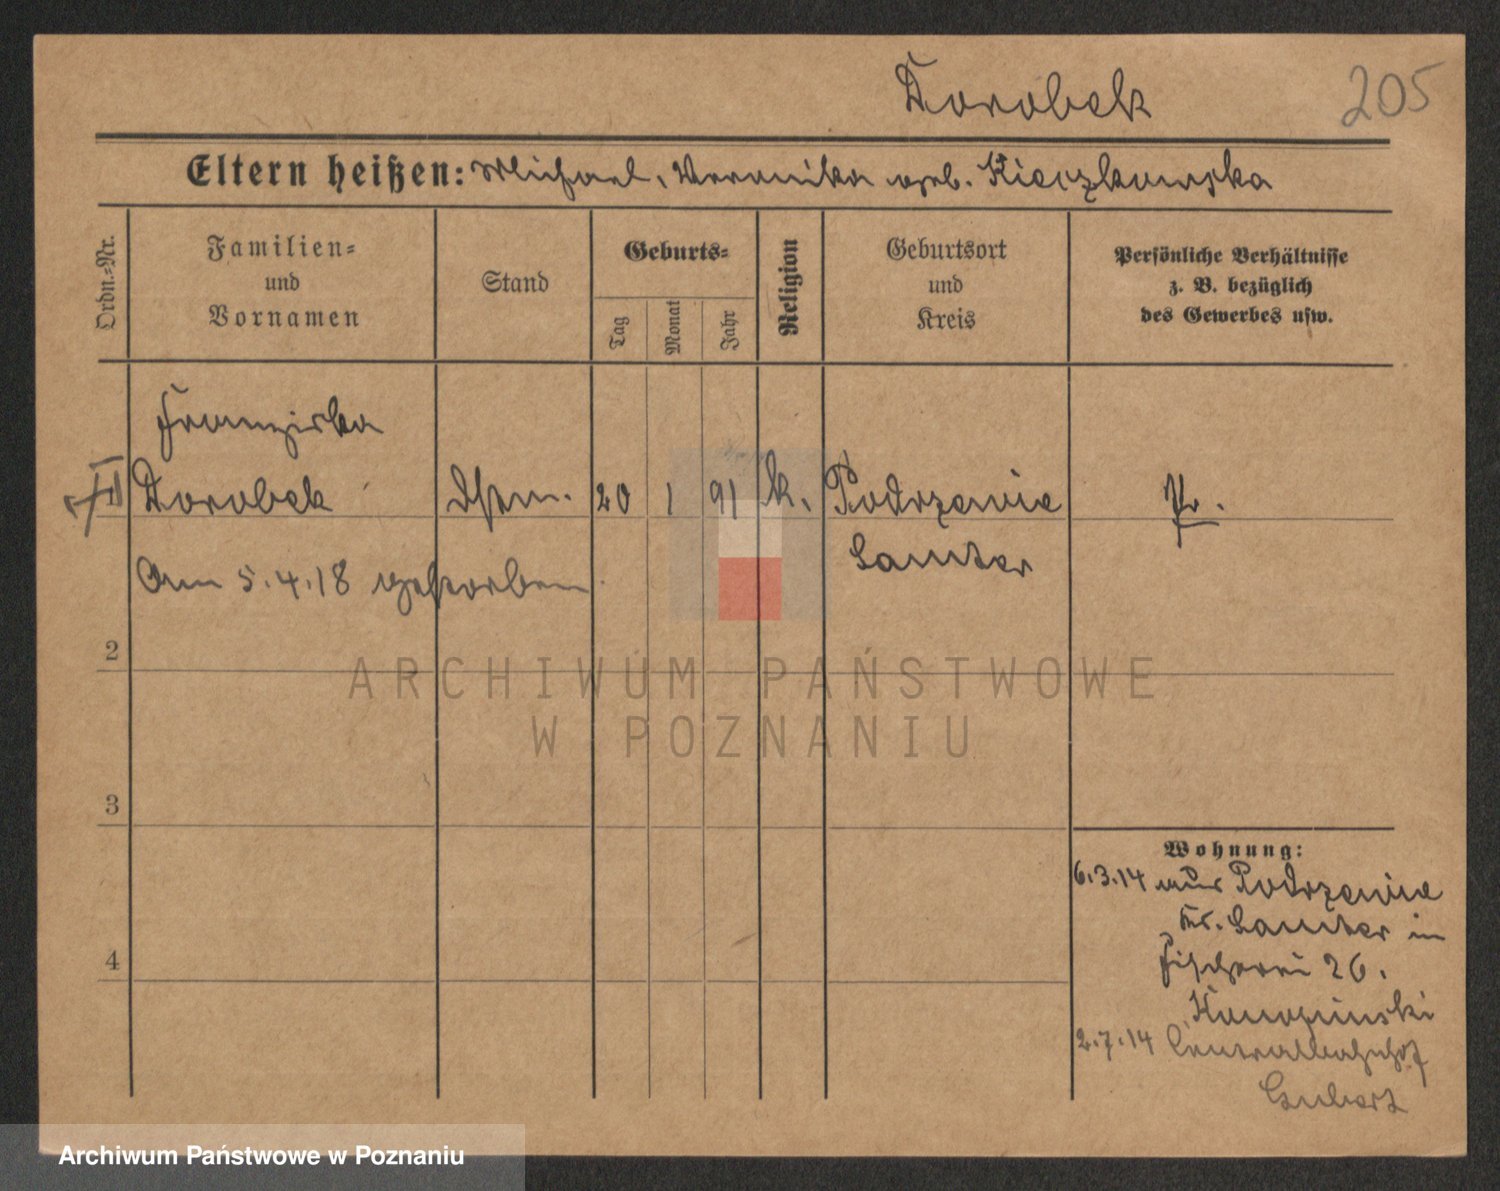 Dorobek 205
Eltern heißen: Michael, Veronika geb. Kieczkowska
Ordn.=Nr.
Familien=
und
Vornamen
Stand
Geburts=
Tag
Monat
Jahr
Religion
Geburtsort
und
Kreis
Persönliche Verhältnisse
z. B. bezüglich
des Gewerbes usw.
Franziska
Dorobek 20 1 91 k. Podrzewie Pr.
Samter
Am 5.4.18 gestorben
2
3
4
Wohnung:
6.3.14 aus Podrzewie
Kr. Samter in
Fischerei 26.
Konopinski
2.7.14 Centralbahnhof
ARCHIWUM PAŃSTWOWE
W POZNANIU
Archiwum Państwowe w Poznaniu